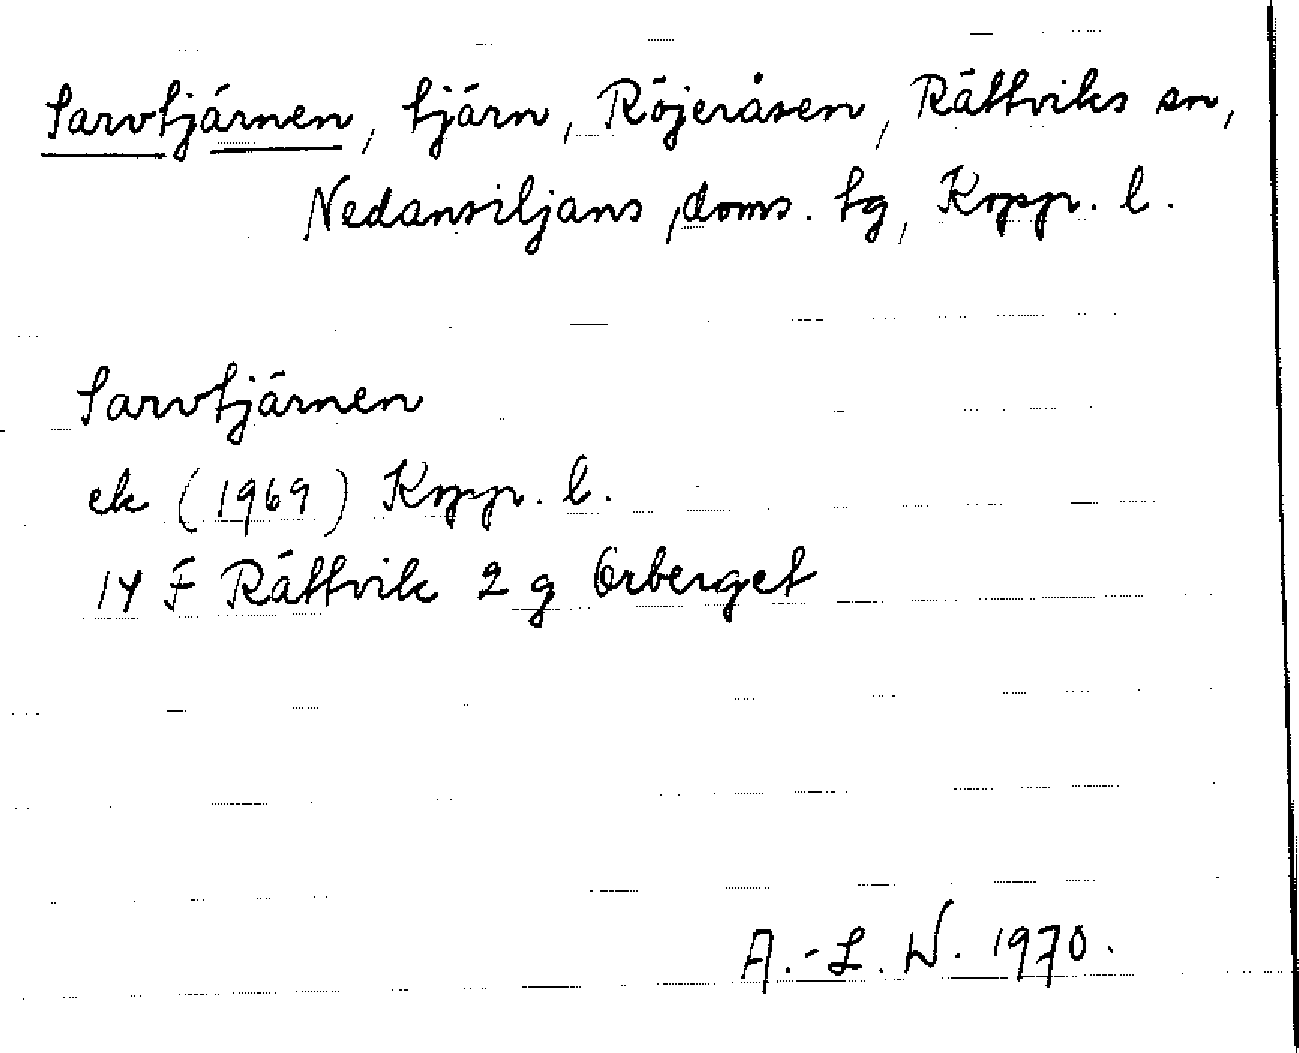 Sarvtjärnen, tjärn, Röjeråsen, Rättviks sn,
Nedansiljans doms. tg, Kopp. l.
Sarvtjärnen
ek (1969) Kopp. l.
14 F Rättvik 2 g Örberget
A.-L. W. 1970.